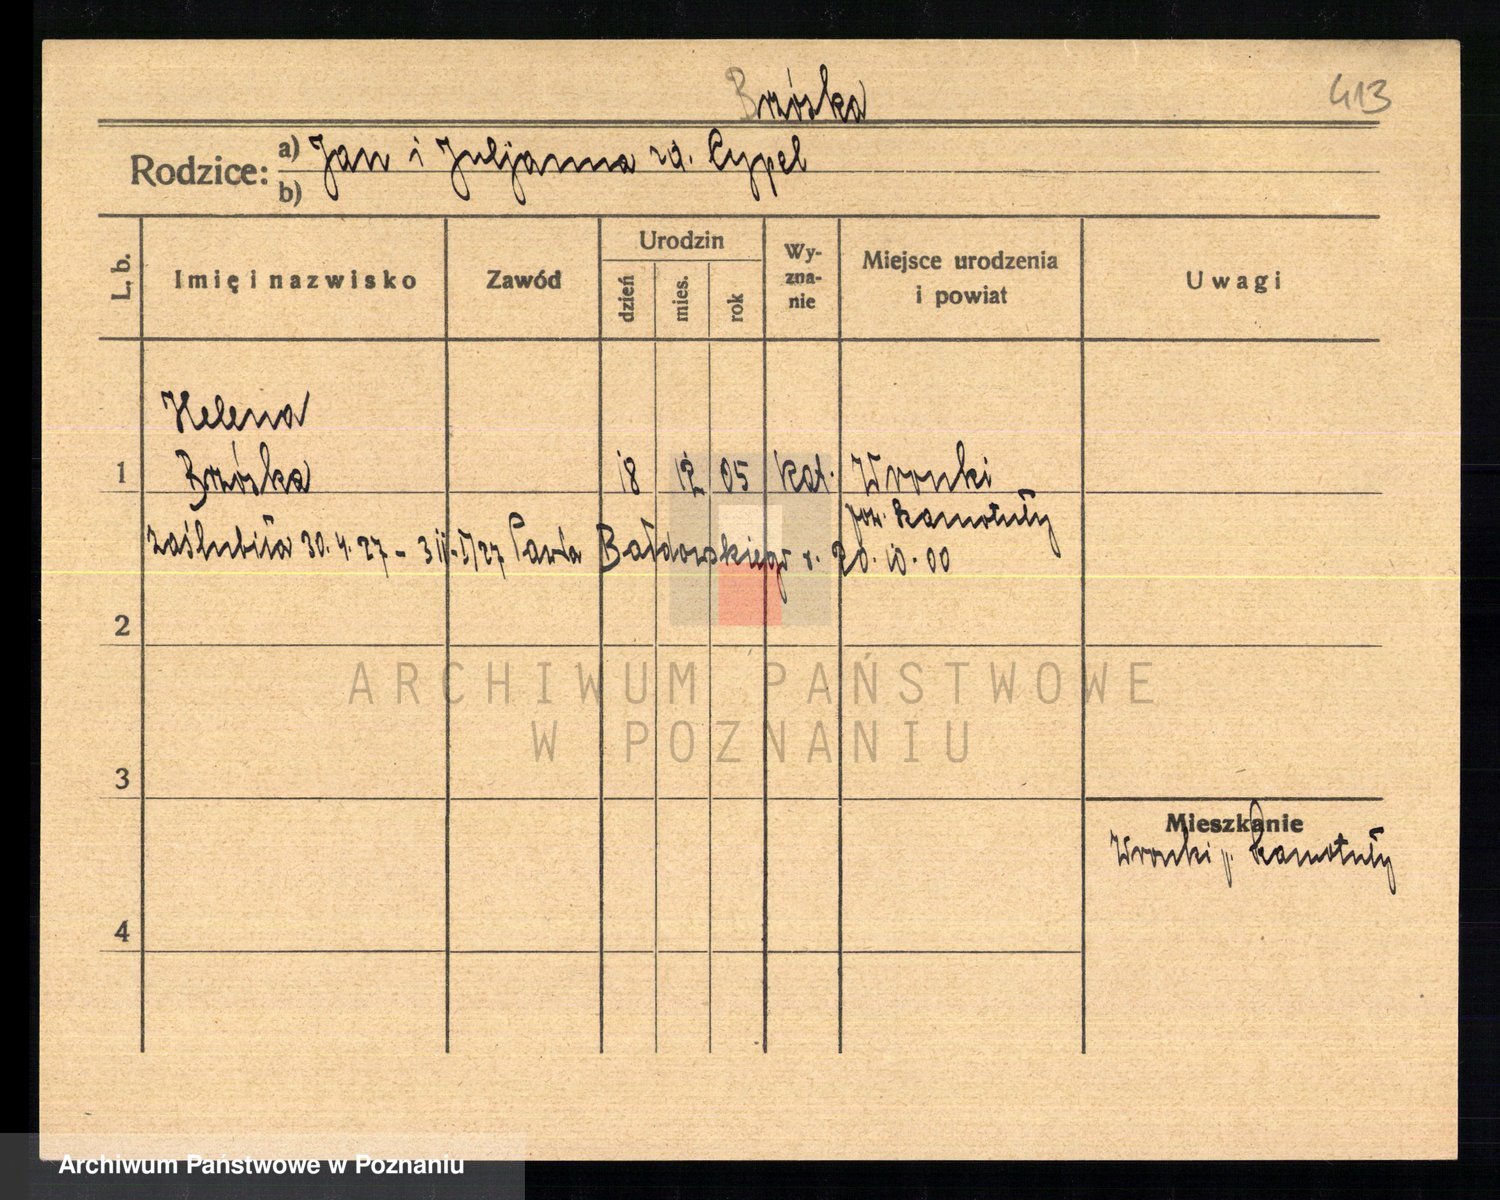 Brzóska
413
Rodzice:
a) Jan i Juljanna zd. Cypel
b)
L. b.
Imię i nazwisko
Zawód
Urodzin
dzień
mies.
rok
Wy-
zna-
nie
Miejsce urodzenia
i powiat
Uwagi
Helena
1 Brzóska 18 12 05 kat. Wronki
pow. Szamotuły
zaślubiła 30.4.27 - Pawła Bałdowskiego r. 20.10.00
2
ARCHIWUM PAŃSTWOWE
W POZNANIU
3
Mieszkanie
Wronki p. Szamotuły
4
Archiwum Państwowe w Poznaniu